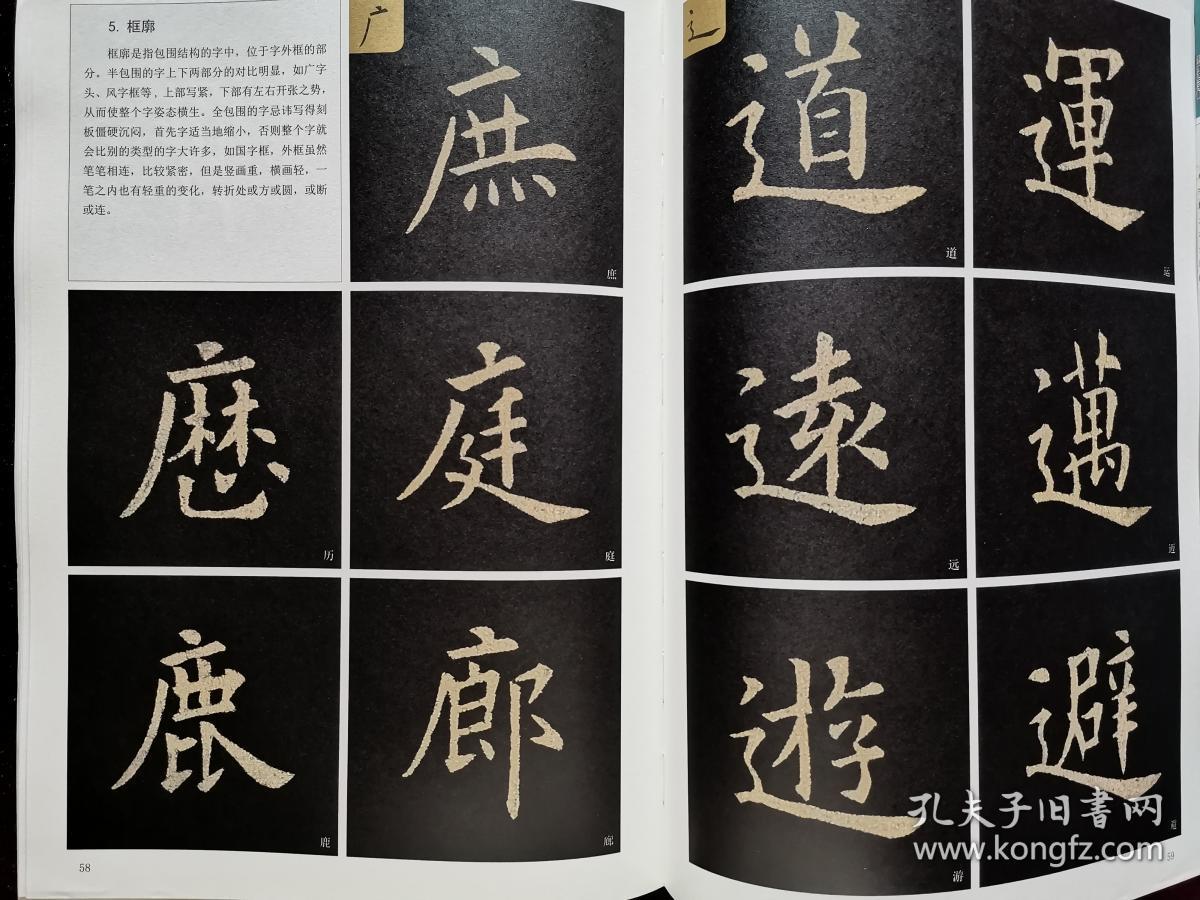 5. 框廓
框廓是指包围结构的字中，位于字外框的部
分。半包围的字上下两部分的对比明显，如广字
头、风字框等，上部写紧，下部有左右开张之势，
从而使整个字姿态横生。全包围的字忌讳写得刻
板僵硬沉闷，首先字适当地缩小，否则整个字就
会比别的类型的字大许多，如国字框，外框虽然
笔笔相连，比较紧密，但是竖画重，横画轻，一
笔之内也有轻重的变化，转折处或方或圆，或断
或连。
广
庶
庶
歷
历
庭
庭
鹿
鹿
廊
廊
58
辶
道
道
運
运
遠
远
邁
迈
遊
游
避
避
59
孔夫子旧書网
www.kongfz.com